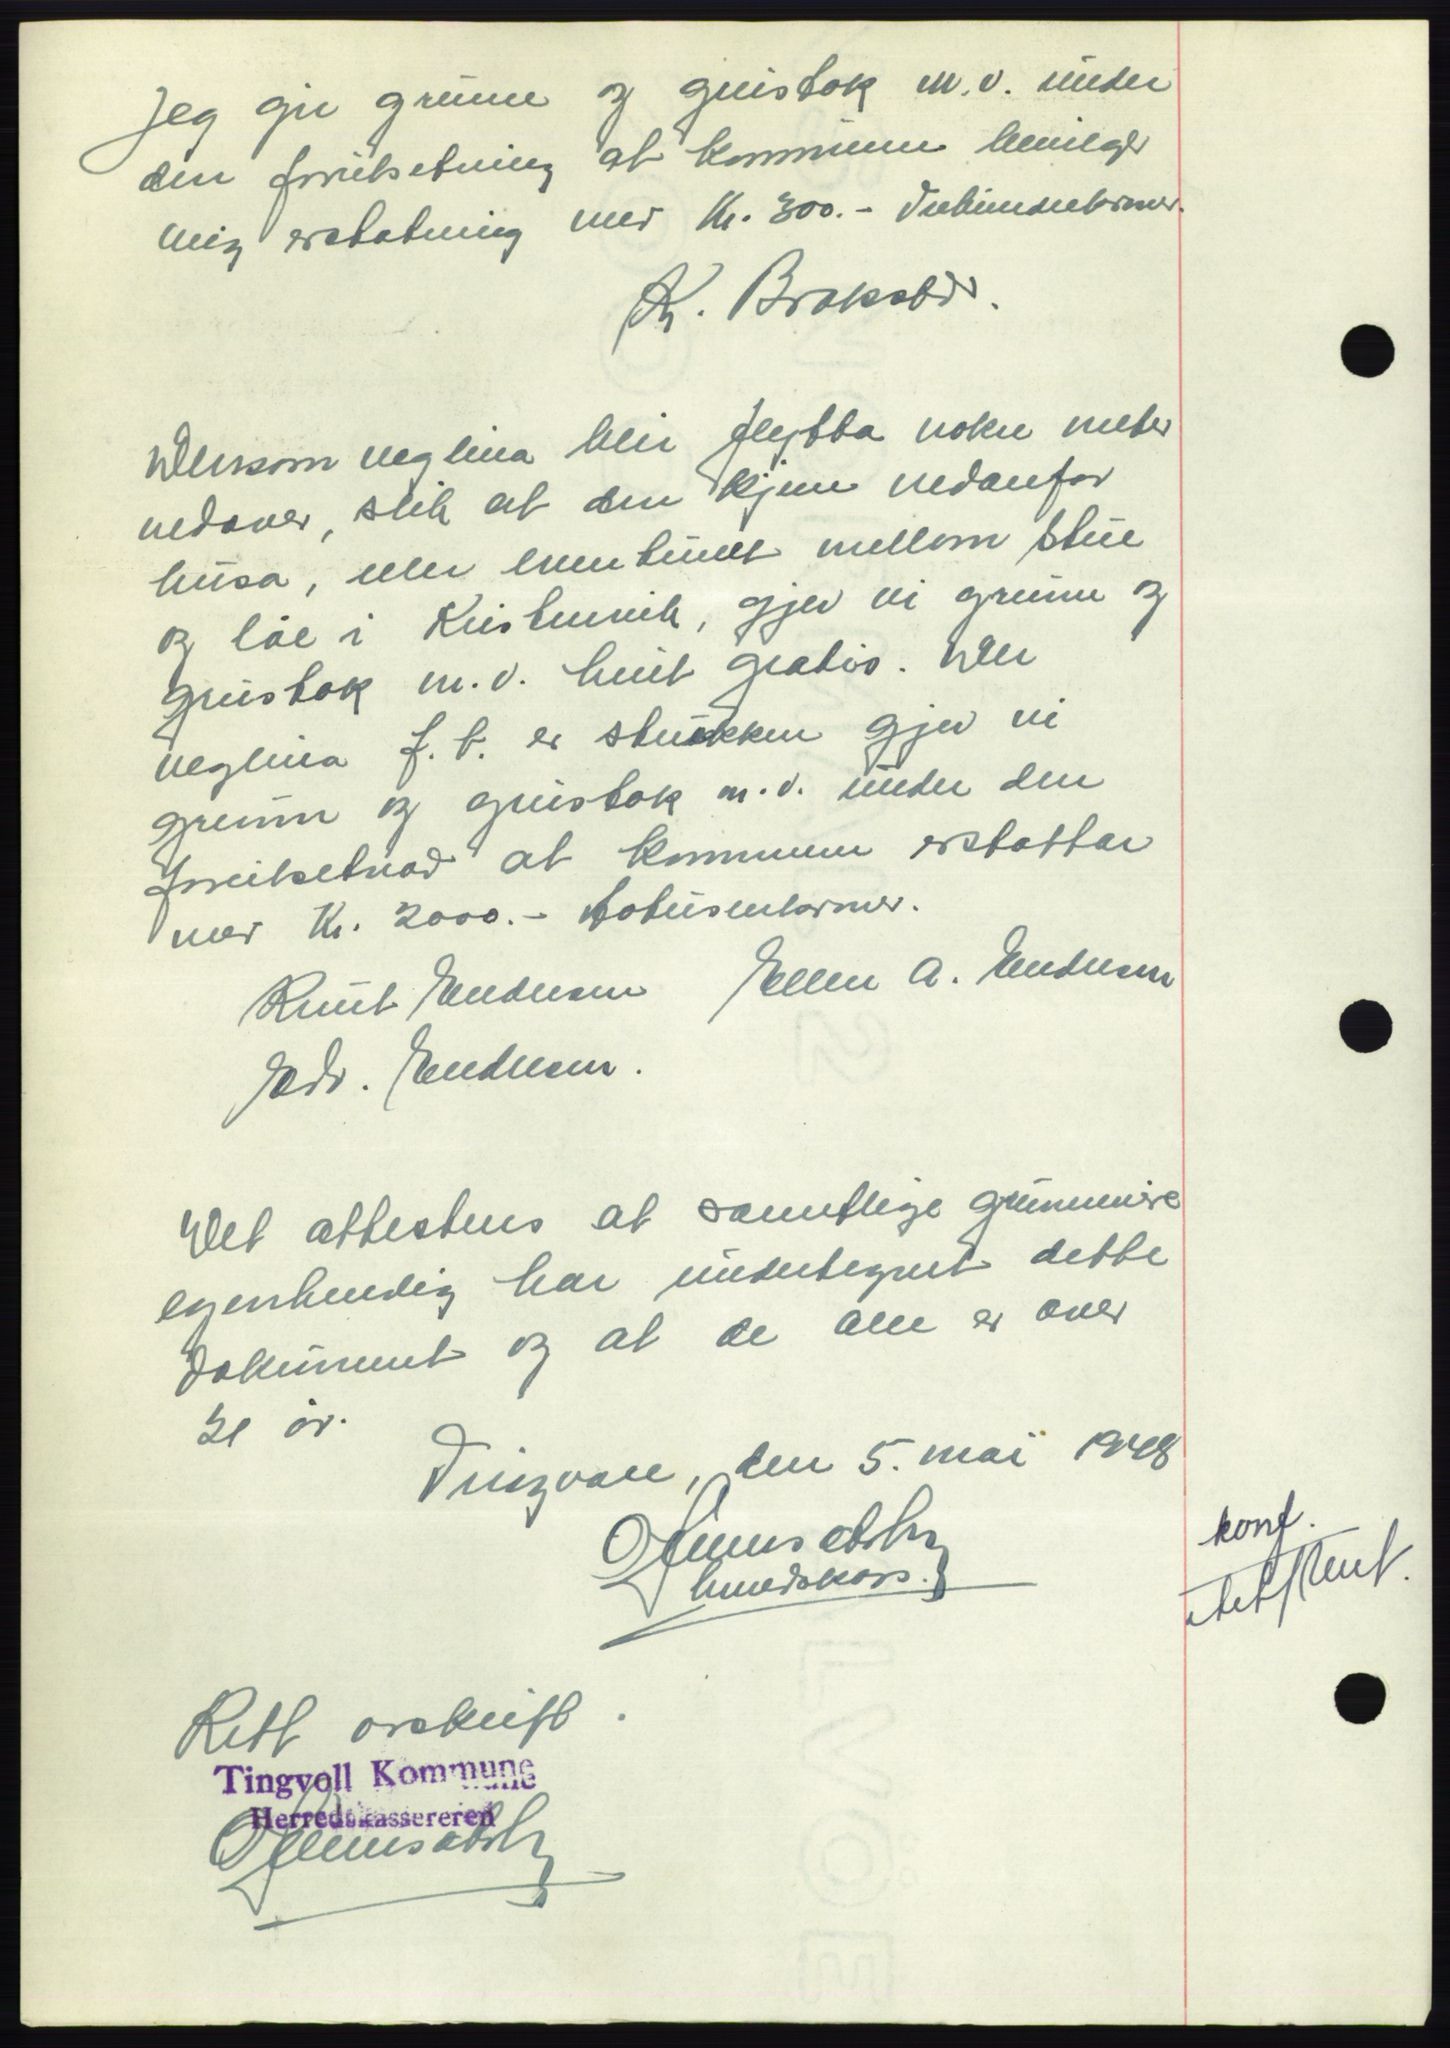 Jeg gir grunn og grustak m.v. under
den forutsetning at kommunen bevilger
meg erstatning med kr. 300.- Trehundrekroner.
K. Braksetr.
Dersom veglina blir flytta noken meter
nedover, slik at den kjem nedanfor
husa, eller eventuelt mellom stue
og löe i Kristenvik, gjev vi grunn og
grustak m.v. heilt gratis. Der
veglina f.t. er stukken gjev vi
grunn og grustak m.v. under den
forutsetnad at kommunen erstattar
med kr. 2000.- totusenkroner.
Knut Endresen Ellen A. Endresen
Edv. Endresen.
Det attesteres at samtlige grunneiere
egenhendig har undertegnet dette
dokument og at de alle er over
21 år.
Tingvoll, den 5. mai 1948
herredskass.
konf.
Rett avskrift.
Tingvoll Kommune
Herredskassereren